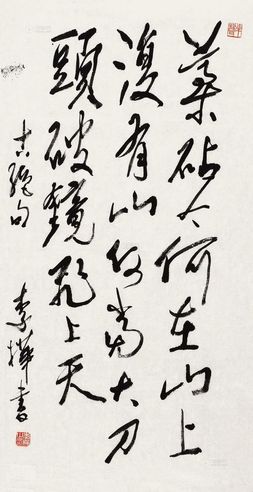 藁砧今何在山上
復有山何當大刀
頭破鏡飛上天
古絕句 李樺書